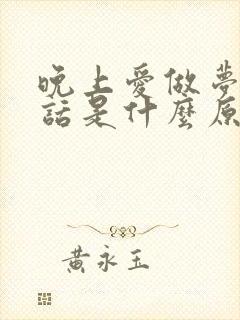 晚上愛做夢
話是什麼原
黃永玉